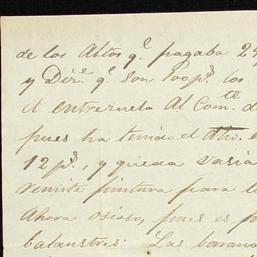 de los Altos q.e pagaba 24
y Dir.e q.e son 100 p.s los
el entresuelo Al Com.te d
pues ha tenido el
12 p.s, y queda vacia
remite pintura para l
Ahora osioso, pues es p
balaustres: Las barana